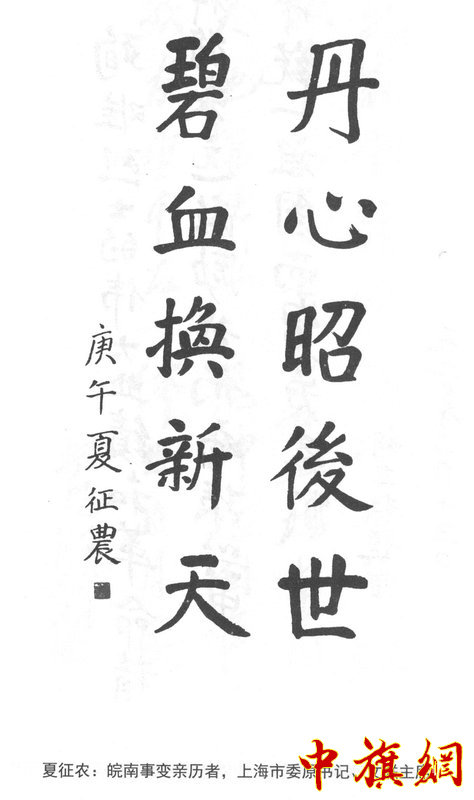 丹心昭後世
碧血換新天
庚午夏征農
夏征农：皖南事变亲历者，上海市委原书记、文联主席
中旗網